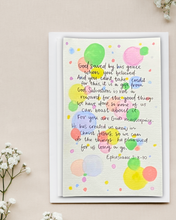 God saved by his grace
when you believed
And you can't take credit
for this, it is a gift from
God. Salvation is not a
reward for the good things
we have done so none of us
can boast about it.
For you are God's masterpiece
he has created us anew in
Christ Jesus, so we can
do the things he planned
for us long ago.
Ephesians 2:8-10